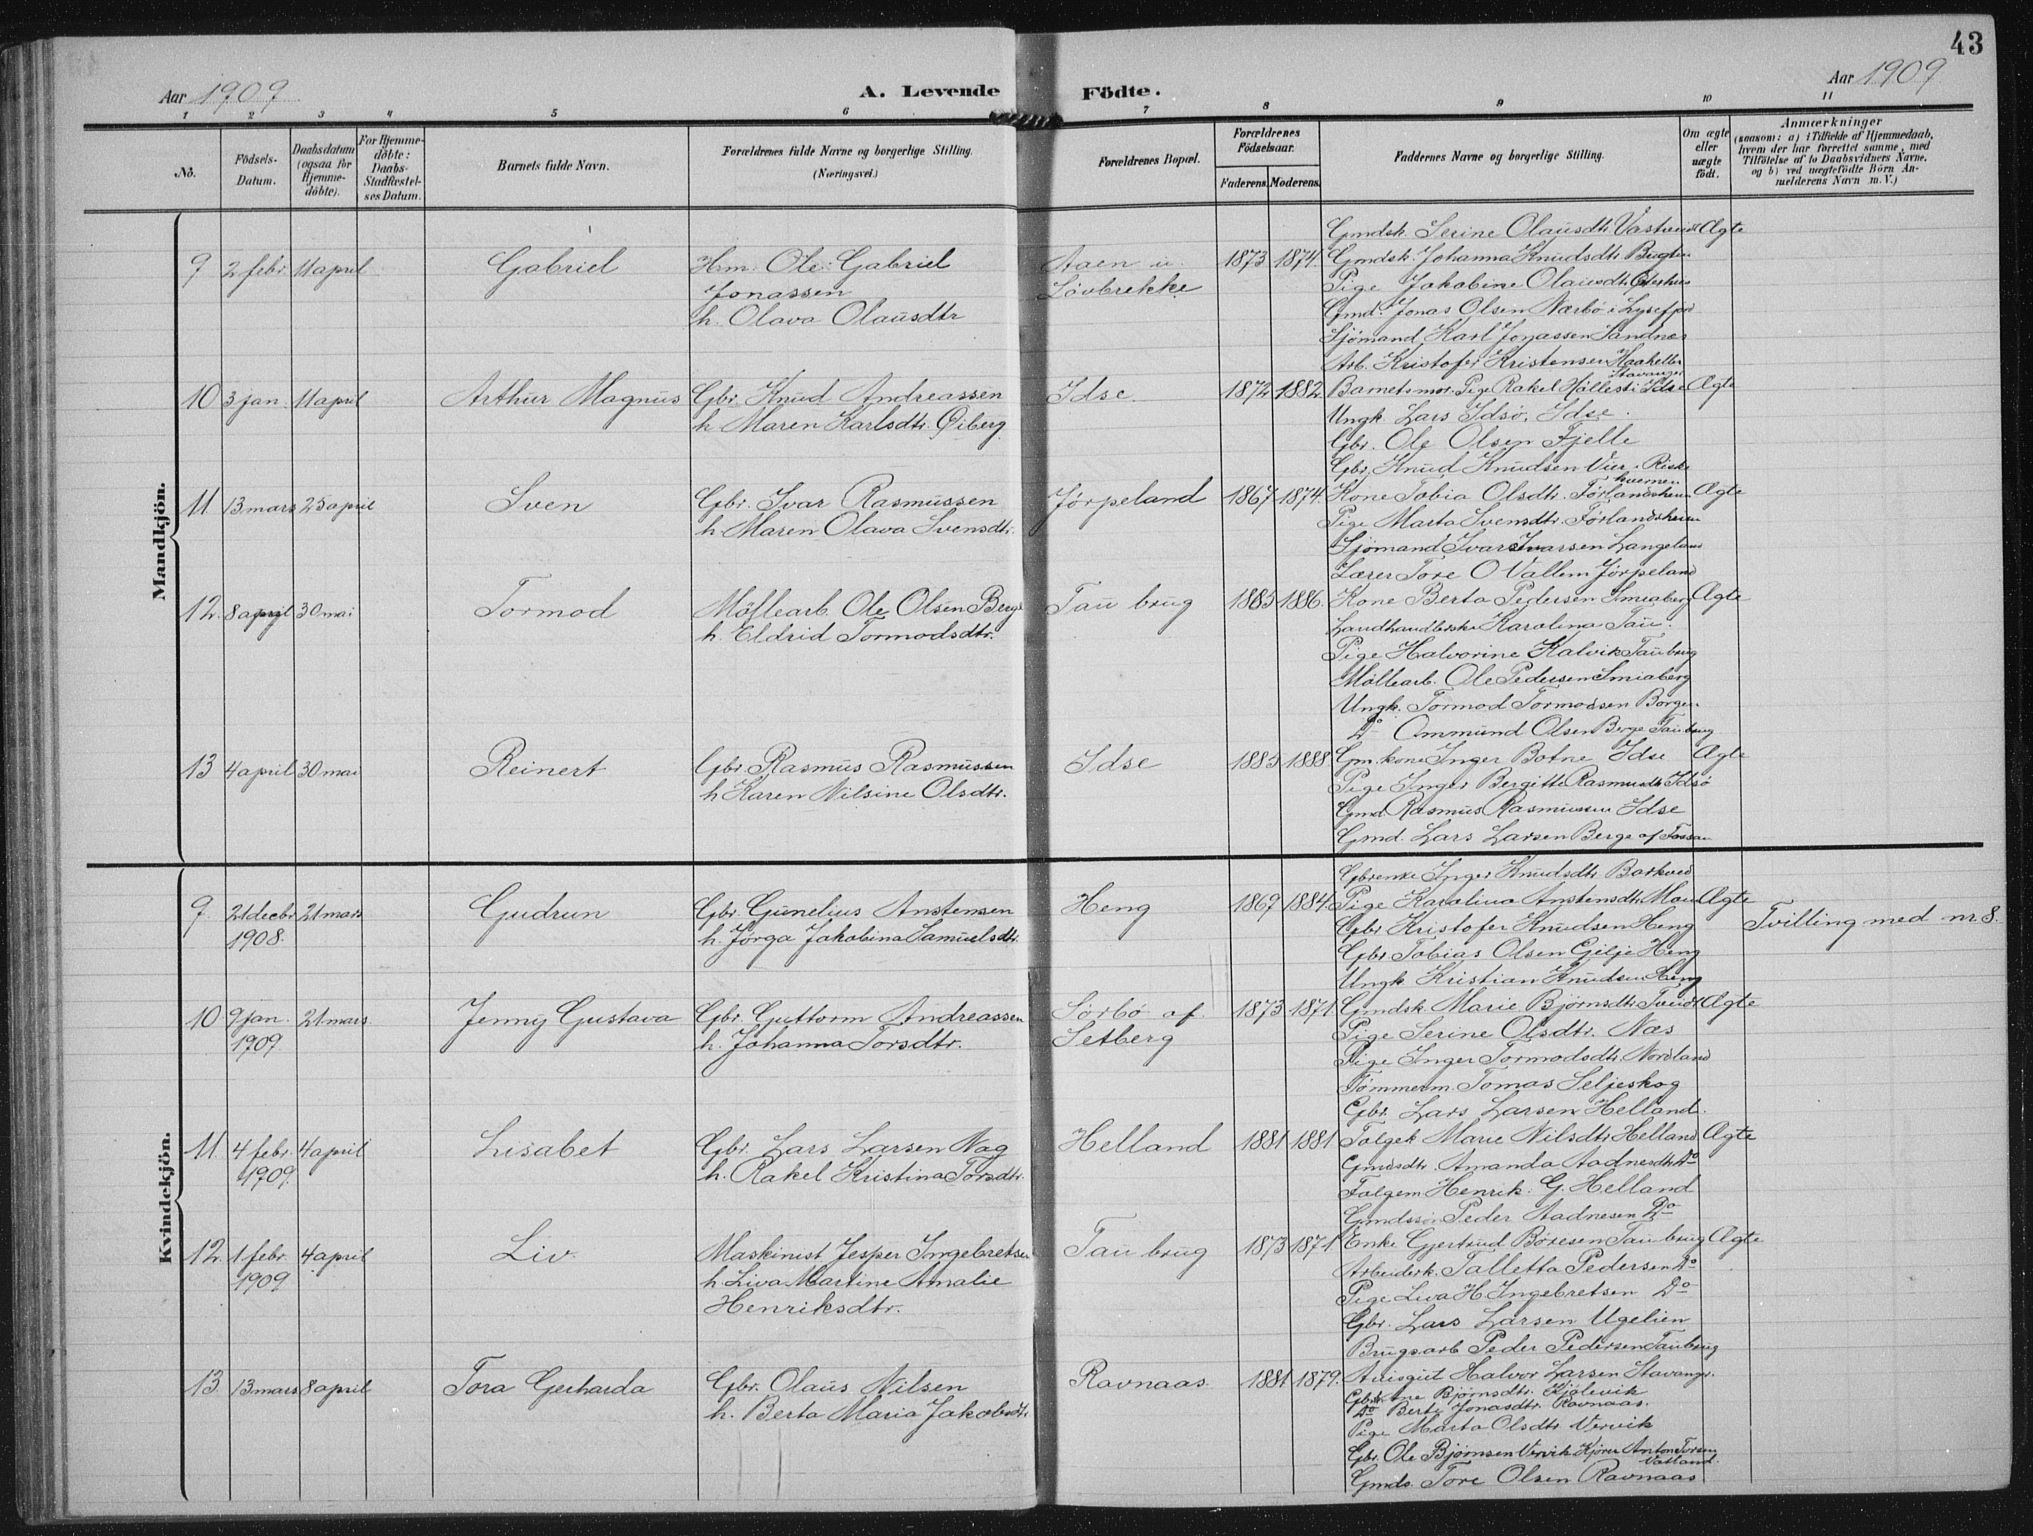 43
Aar 1909
A. Levende Födte.
Aar 1909
1 2 3 4 5 6 7 8 9 10 11
No.
Födsels-Datum.
Daabsdatum (ogsaa for Hjemme-döbte).
For Hjemme-döbte: Daabs-Stadfæstel-ses Datum.
Barnets fulde Navn.
Forældrenes fulde Navne og borgerlige Stilling. (Næringsvei.)
Forældrenes Bopæl.
Forældrenes Födselsaar.
Faderens. Moderens.
Faddernes Navne og borgerlige Stilling.
Om ægte eller uægte födt.
Anmærkninger
(saasom: a) i Tilfælde af Hjemmedaab,
hvem der har forrettet samme, med
Tilföielse af to Daabsvidners Navne,
og b) ved uægtefödte Börn An-
melderens Navn m. V.)
Mandkjön.
9 2 febr. 11 april Gabriel
Hm. Ole Gabriel
Jonassen
h. Olava Olausdtr
Aaen u.
Løvbrekke
1873 1874. Ægte
Gmdsk. Serine Olausdtr. Vastveidt
Gmdsk. Johanna Knudsdtr.
Pige Jakobine Olausdtr.
Gmd. Jonas Olsen Nærbö i Lysefjord
Sjömand Karl Jonassen Sandnes
Arb. Kristofer Kristensen
Stavanger
10 3 jan. 11 april Arthur Magnus
Gbr. Knud Andreassen
h. Maren Karlsdtr. Øiberg
Idse
1872 1882. Ægte
Barnets mor. Pige Rakel Hölleslie Idse
Ungk. Lars Idsö, Idse.
Gbr. Ole Olsen Fjelle
Gbr. Knud Knudsen Vier.
11 13 mars 25 april Sven
Gbr. Ivar Rasmussen
h. Maren Olava Svensdtr.
Jörpeland
1867 1874. Ægte
Kone Tobia Olsdtr. Förlandsheim
Pige Marta Svensdtr. Förlandsheim
Sjömand Ivar Ivarsen Langeland
Lærer Tore O Vallem Jörpeland
12. 8 april 30 mai Tormod
Möllearb. Ole Olsen Berge
h. Eldrid Tormodsdtr.
Tau brug
1885 1886. Ægte
Kone Berta Pedersen Smiaberg
Landhandlerske Karolina Tau.
Pige Halvorine Kalvik Taubrug
Möllearb. Ole Pedersen Smiaberg
Ungk. Tormod Tormodsen Borgen
Do Ommund Olsen Berge Taubrug
13 4 april 30 mai Reinert
Gbr. Rasmus Rasmussen
h. Karen Nilsine Olsdtr.
Idse
1885 1888 Ægte
Gm. kone Inger Botne Idse
Pige Inger Bergitte Rasmusdtr. Idsö
Gmd. Rasmus Rasmussen Idse
Gmd. Lars Larsen Berge af Fossan
Kvindekjön.
9. 21 decbr. 1908. 21 mars Gudrun
Gbr. Gunelius Anstensen
h. Jörga Jakobina Samuelsdtr.
Heng
1869 1884. Ægte
Tvilling med nr. 8.
Gbrenke Inger Knudsdtr. Barkved
Pige Karolina Anstensdtr.
Gbr. Kristofer Knudsen Heng
Gbr. Tobias Olsen Gilje Heng
Ungk. Kristian Knudsen Heng
10 9 jan. 1909. 21 mars. Jenny Gustava
Gbr. Guttorm Andreassen
h. Johanna Torsdtr.
Sörbö af
Setberg
1873 1871 Ægte
Gmdsk. Marie Björnsdtr. Tveidt
Pige Serine Olsdtr. Næs
Pige Inger Tormodsdtr. Nordland
Tömmerm. Tomas Seljeskog
Gbr. Lars Larsen Helland.
11. 4 febr. 1909. 4 april Lisabet
Gbr. Lars Larsen Nag
h. Rakel Kristina Torsdtr.
Helland
1881 1881 Ægte
Folgek. Marie Nilsdtr. Helland
Gmdsdtr. Amanda Aadnesdtr. Do
Folgem. Henrik G. Helland
Gmdssön Peder Aadnesen Do
12. 1 febr. 1909 4 april Liv.
Maskinist Jesper Ingebretsen
h. Liva Martine Amalie
Henriksdtr.
Tau brug
1873 1871 Ægte
Enke Gjertrud Böresen Taubrug
Arbeiderk. Talletta Pedersen Do
Pige Liva H. Ingebretsen Do
Gbr. Lars Larsen Ugelien
Brugsarb. Peder Pedersen Taubrug
13. 13 mars 8 april Tora Gerharda
Gbr. Olaus Nilsen
h. Berta Maria Jakobsdtr.
Ravnaas.
1881 1879.
Avisgut Halvor Larsen Stavanger.
Björnsdtr. Kjölevik
Do Berte Jonasdtr. Ravnaas.
Pige Marta Olsdtr. Vervik
Gbr. Ole Björnsen Vervik Anton Torsen
Vatland
Gmds. Tore Olsen Ravnaas.